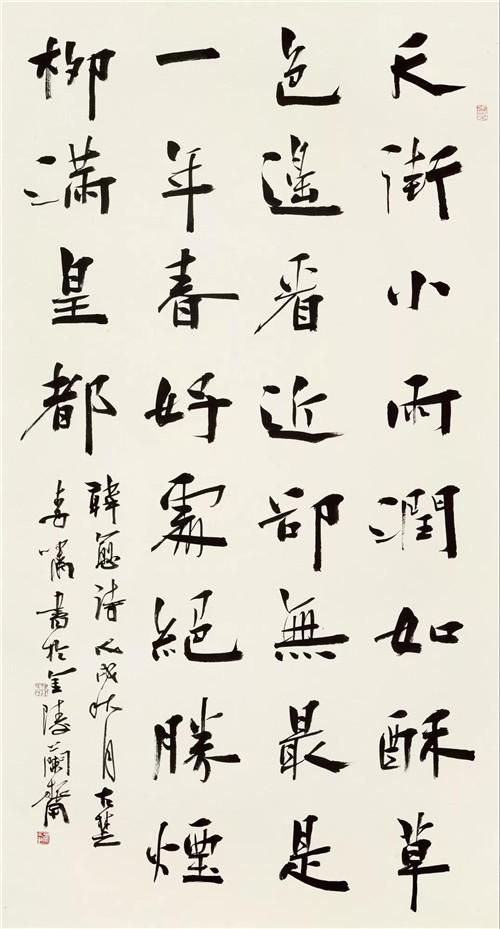 天街小雨潤如酥草
色遙看近卻無最是
一年春好處絕勝煙
柳滿皇都
韓愈詩 戌秋月古楚
李嘯書於金陵蘭齋